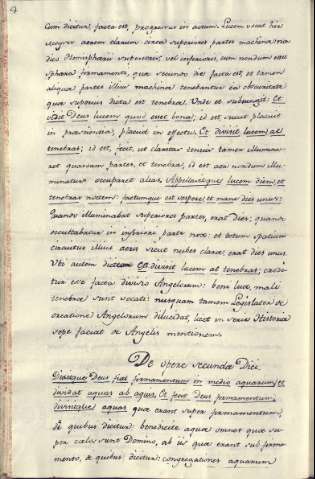 4
Cum dicitur, facta est, progressus in actum. Lucem vocat hic
aerem clarum circa superiores partes machinæ mun
dies Hemispherii superioris, vel inferioris, cum nondum esset
sphæra firmamenti, quæ secunda die facta est, et tamen
aliqua pars illius machinæ tenebatur in obscuritate
quæ superius dicta est tenebræ. Unde et subiungit: Et
vidit Deus lucem quod esset bona; id est sicut placuit
in præscientia, placuit in effectu. Et divisit lucem ac
tenebras; id est, fecit, ut claritas tenuis tamen illumina
ret quasdam partes, et tenebræ, id est aer nondum illu
minatus occuparet alias. Appellavitque lucem diem, et
tenebras noctem: factumque est vespere, et mane dies unus:
Quando illuminabat superiores partes, erat dies; quando
occultabatur in inferiore parte nox: et totum spatium
circuitus illius aeris sicut nubes clara erat dies unus.
Ubi autem dicitur Et divisit lucem ac tenebras; credi
tur ibi facta divisio Angelorum: boni lux, mali
tenebræ sunt vocati: nusquam tamen Legislator de
creatione Angelorum dilucidat, licet in serie Historiæ
sæpe faciat de Angelis mentionem.
De opere secundæ Diei
Dixitque Deus fiat firmamentum in medio aquarum, et
dividat aquas ab aquis. Et fecit Deus firmamentum,
divisitque aquas quæ erant super firmamentum,
de quibus dicitur: benedicite aquæ omnes quæ su
pra cælos sunt Domino, ab iis quæ erant sub firma
mento, de quibus dicitur: congregationes aquarum